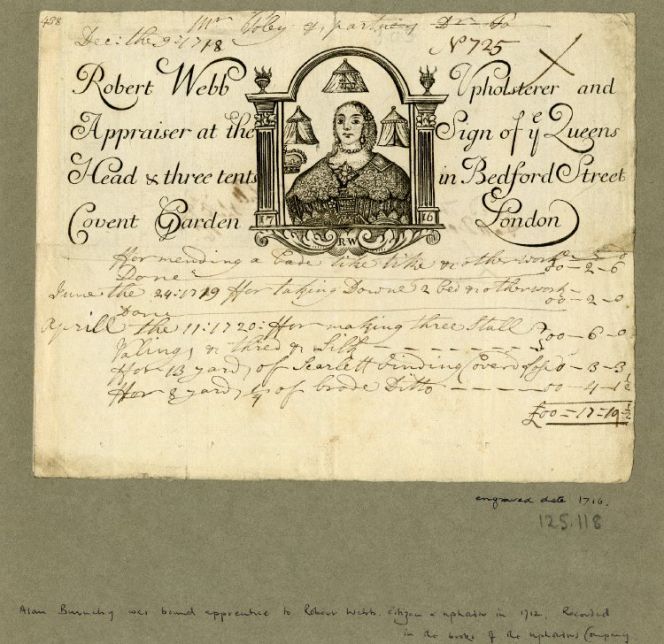 458
Mr Foley & partners Dr To
Dec: the 9: 1718
No 725
Robert Webb Upholsterer and
Appraiser at the Sign of ye Queens
Head & three tents in Bedford Street
Covent Garden London
17 16
RW
ffor mending a like & other work
Done 00-2-6
June the 24: 1719 ffor taking Downe 2 bed & other work
Done 00-2-0
Aprill the 11: 1720: ffor making three Stall
Valings & thred & Silk 00-6-0
ffor 13 yards of Scarlett 0-3-3
ffor 8 yards of brode Ditto 00-4-1½
£00-17-10½
engraved date 1716.
125.118
Alan was bound apprentice to Robert Webb, citizen & upholder in 1712. Recorded
in the books of the Upholders Company